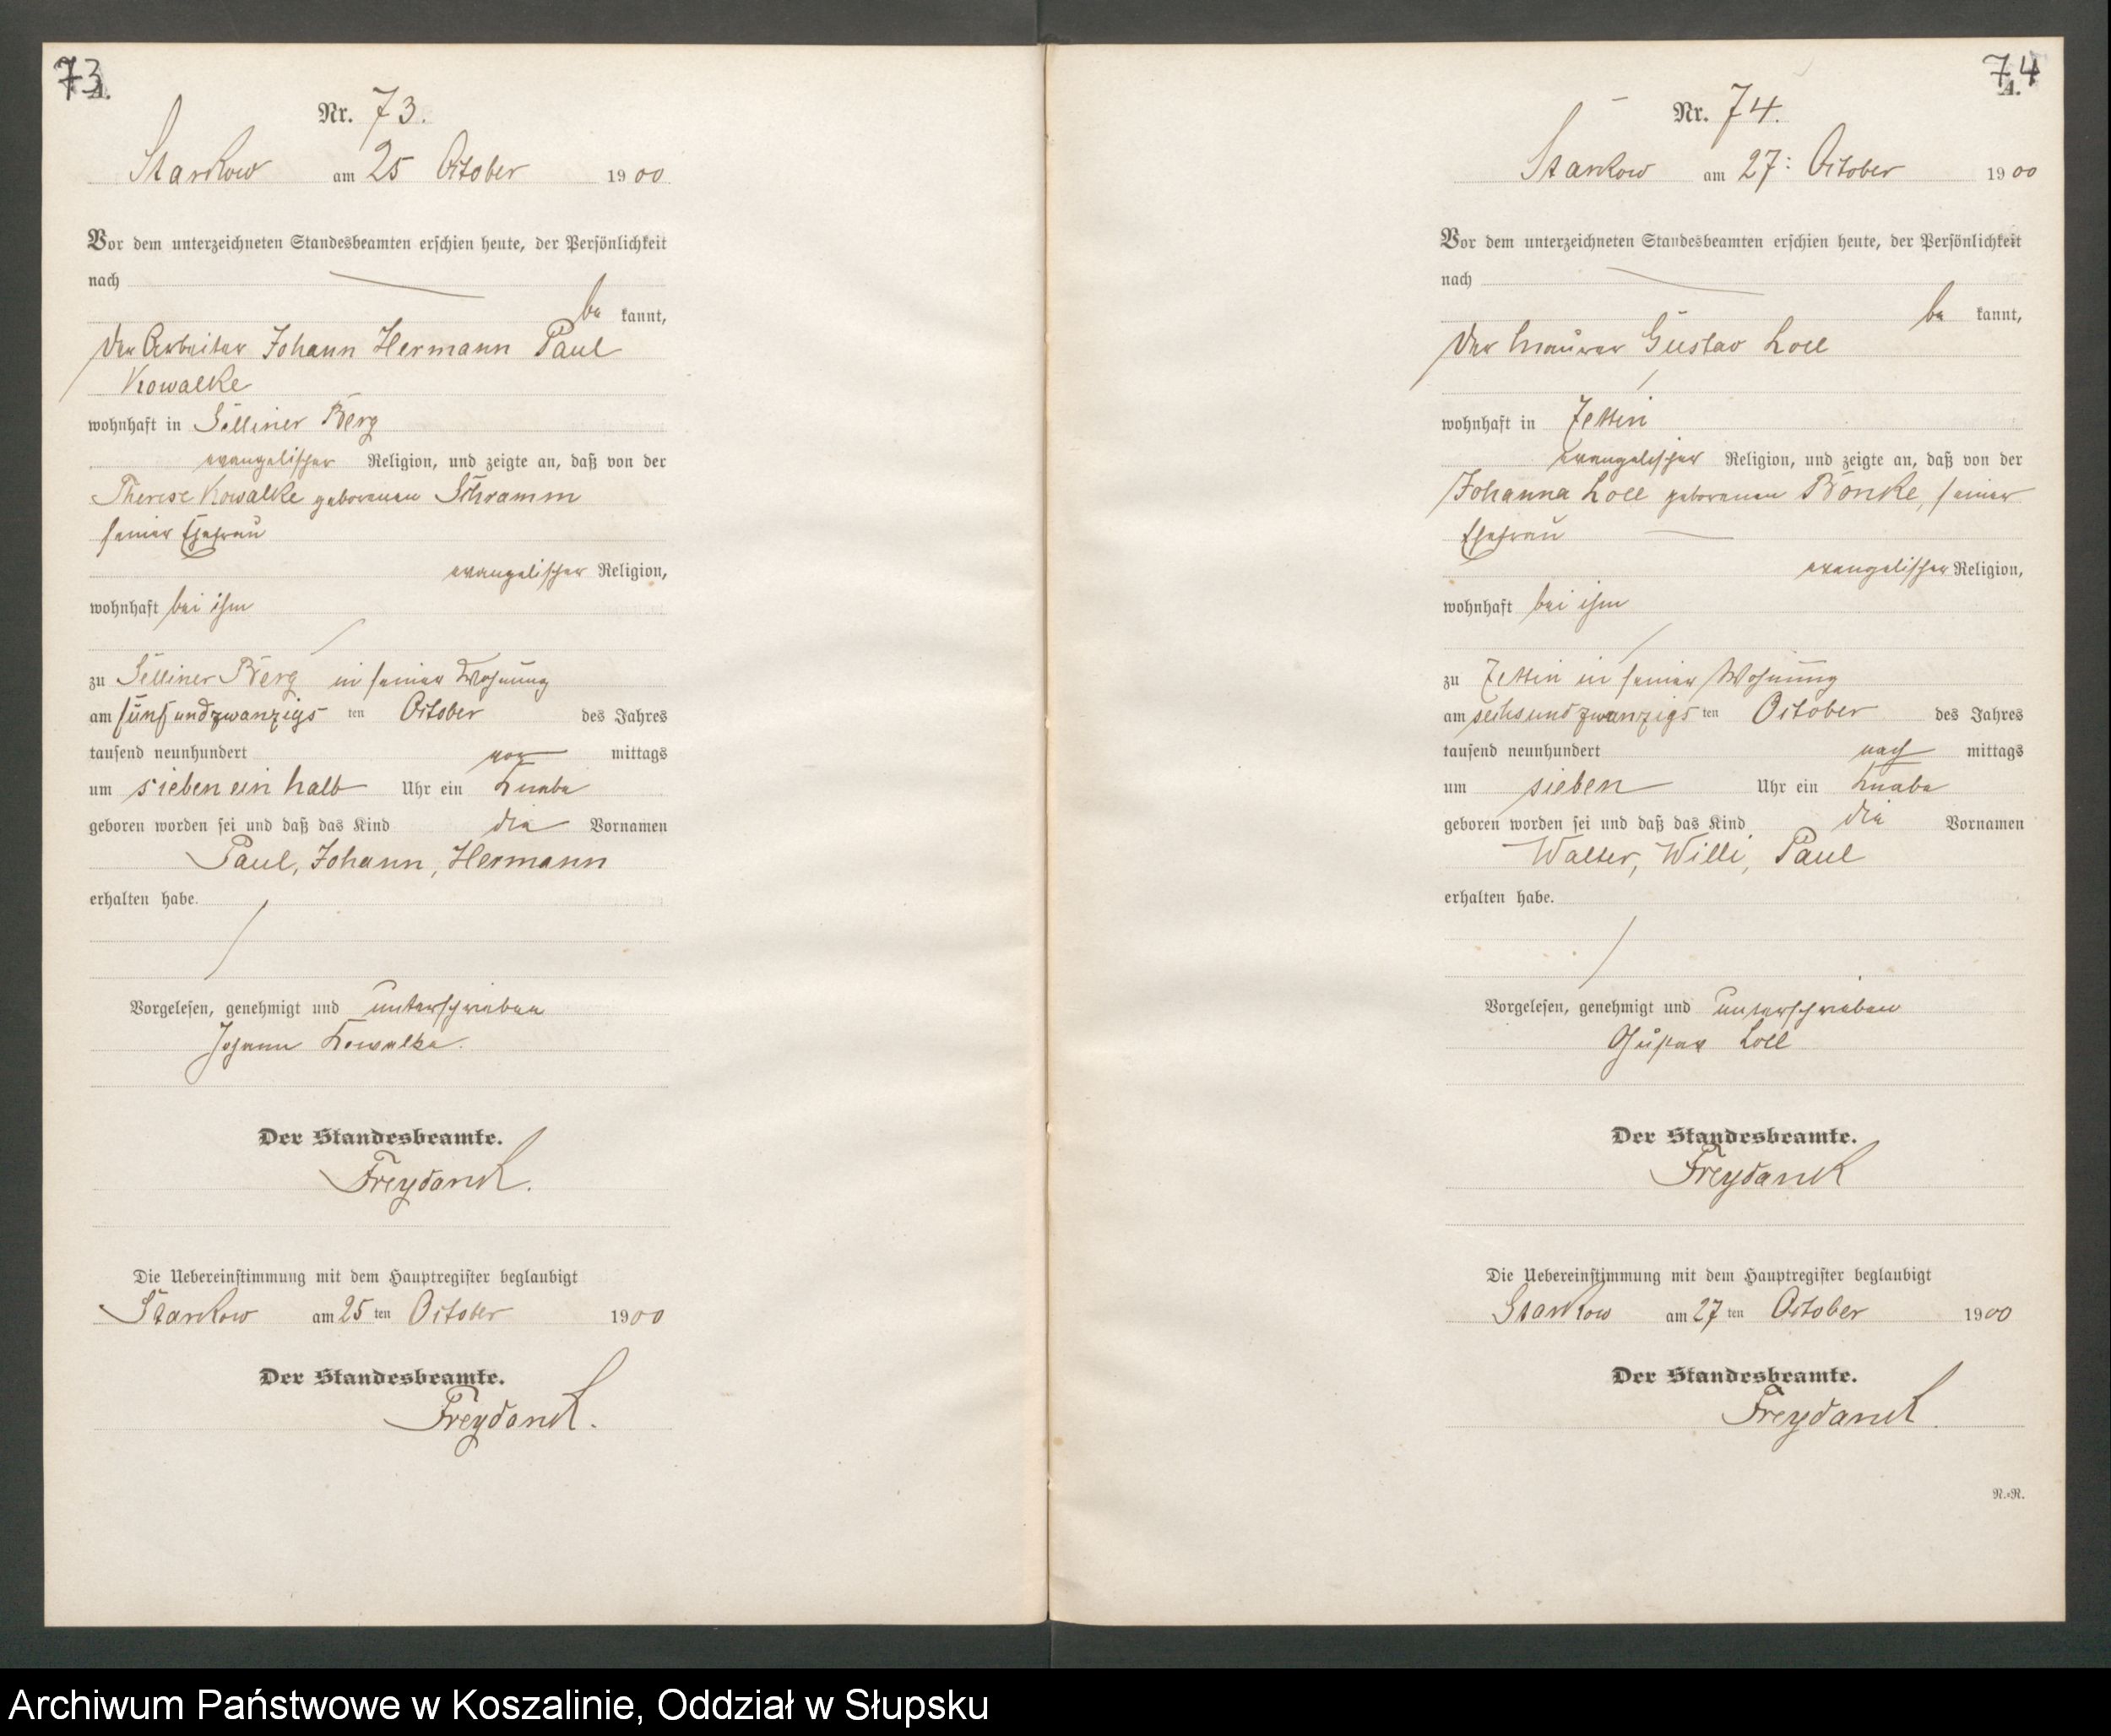 73
A.
Nr. 73.
Starkow am 25 October 1900
Vor dem unterzeichneten Standesbeamten erschien heute, der Persönlichkeit
nach
be kannt,
der Arbeiter Johann Hermann Paul
Kowalke
wohnhaft in Selliner Berg
evangelischer Religion, und zeigte an, daß von der
Therese Kowalke geborenen Schramm
seiner Ehefrau
evangelischer Religion,
wohnhaft bei ihm
zu Selliner Berg in seiner Wohnung
am fünfundzwanzigsten October des Jahres
tausend neunhundert vor mittags
um sieben ein halb Uhr ein Knabe
geboren worden sei und daß das Kind die Vornamen
Paul, Johann, Hermann
erhalten habe.
Vorgelesen, genehmigt und unterschrieben
Johann Kowalke.
Der Standesbeamte.
Freydanck.
Die Uebereinstimmung mit dem Hauptregister beglaubigt
Starkow am 25 ten October 1900
Der Standesbeamte.
Freydanck.
74
A.
Nr. 74.
Starkow am 27: October 1900
Vor dem unterzeichneten Standesbeamten erschien heute, der Persönlichkeit
nach
be kannt,
der Maurer Gustav Loll
wohnhaft in Zettin
evangelischer Religion, und zeigte an, daß von der
Johanna Loll geborenen Bönke, seiner
Ehefrau
evangelischer Religion,
wohnhaft bei ihm
zu Zettin in seiner Wohnung
am sechsundzwanzigsten October des Jahres
tausend neunhundert nach mittags
um sieben Uhr ein Knabe
geboren worden sei und daß das Kind die Vornamen
Walter, Willi, Paul
erhalten habe.
Vorgelesen, genehmigt und unterschrieben
Gustav Loll
Der Standesbeamte.
Freydanck
Die Uebereinstimmung mit dem Hauptregister beglaubigt
Starkow am 27 ten October 1900
Der Standesbeamte.
Freydanck.
R.-R.
Archiwum Państwowe w Koszalinie, Oddział w Słupsku